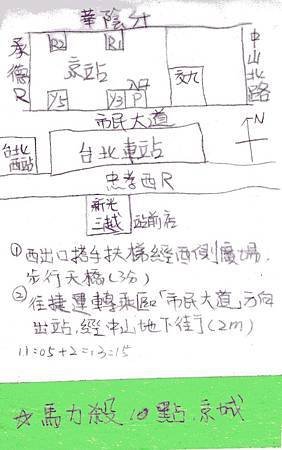 華陰街
承德R
R2
R1
京站
中山北路
Y5
Y3
入口
P
交九
市民大道
N
台北西站
台北車站
忠孝西R
新光三越
站前店
①西出口搭手扶梯經西側廣場.
步行天橋(3分)
②往捷運轉乘區「市民大道」方向
出站.經中山地下街(2m)
11:05+2=13:15
☆馬力殺10點.京城